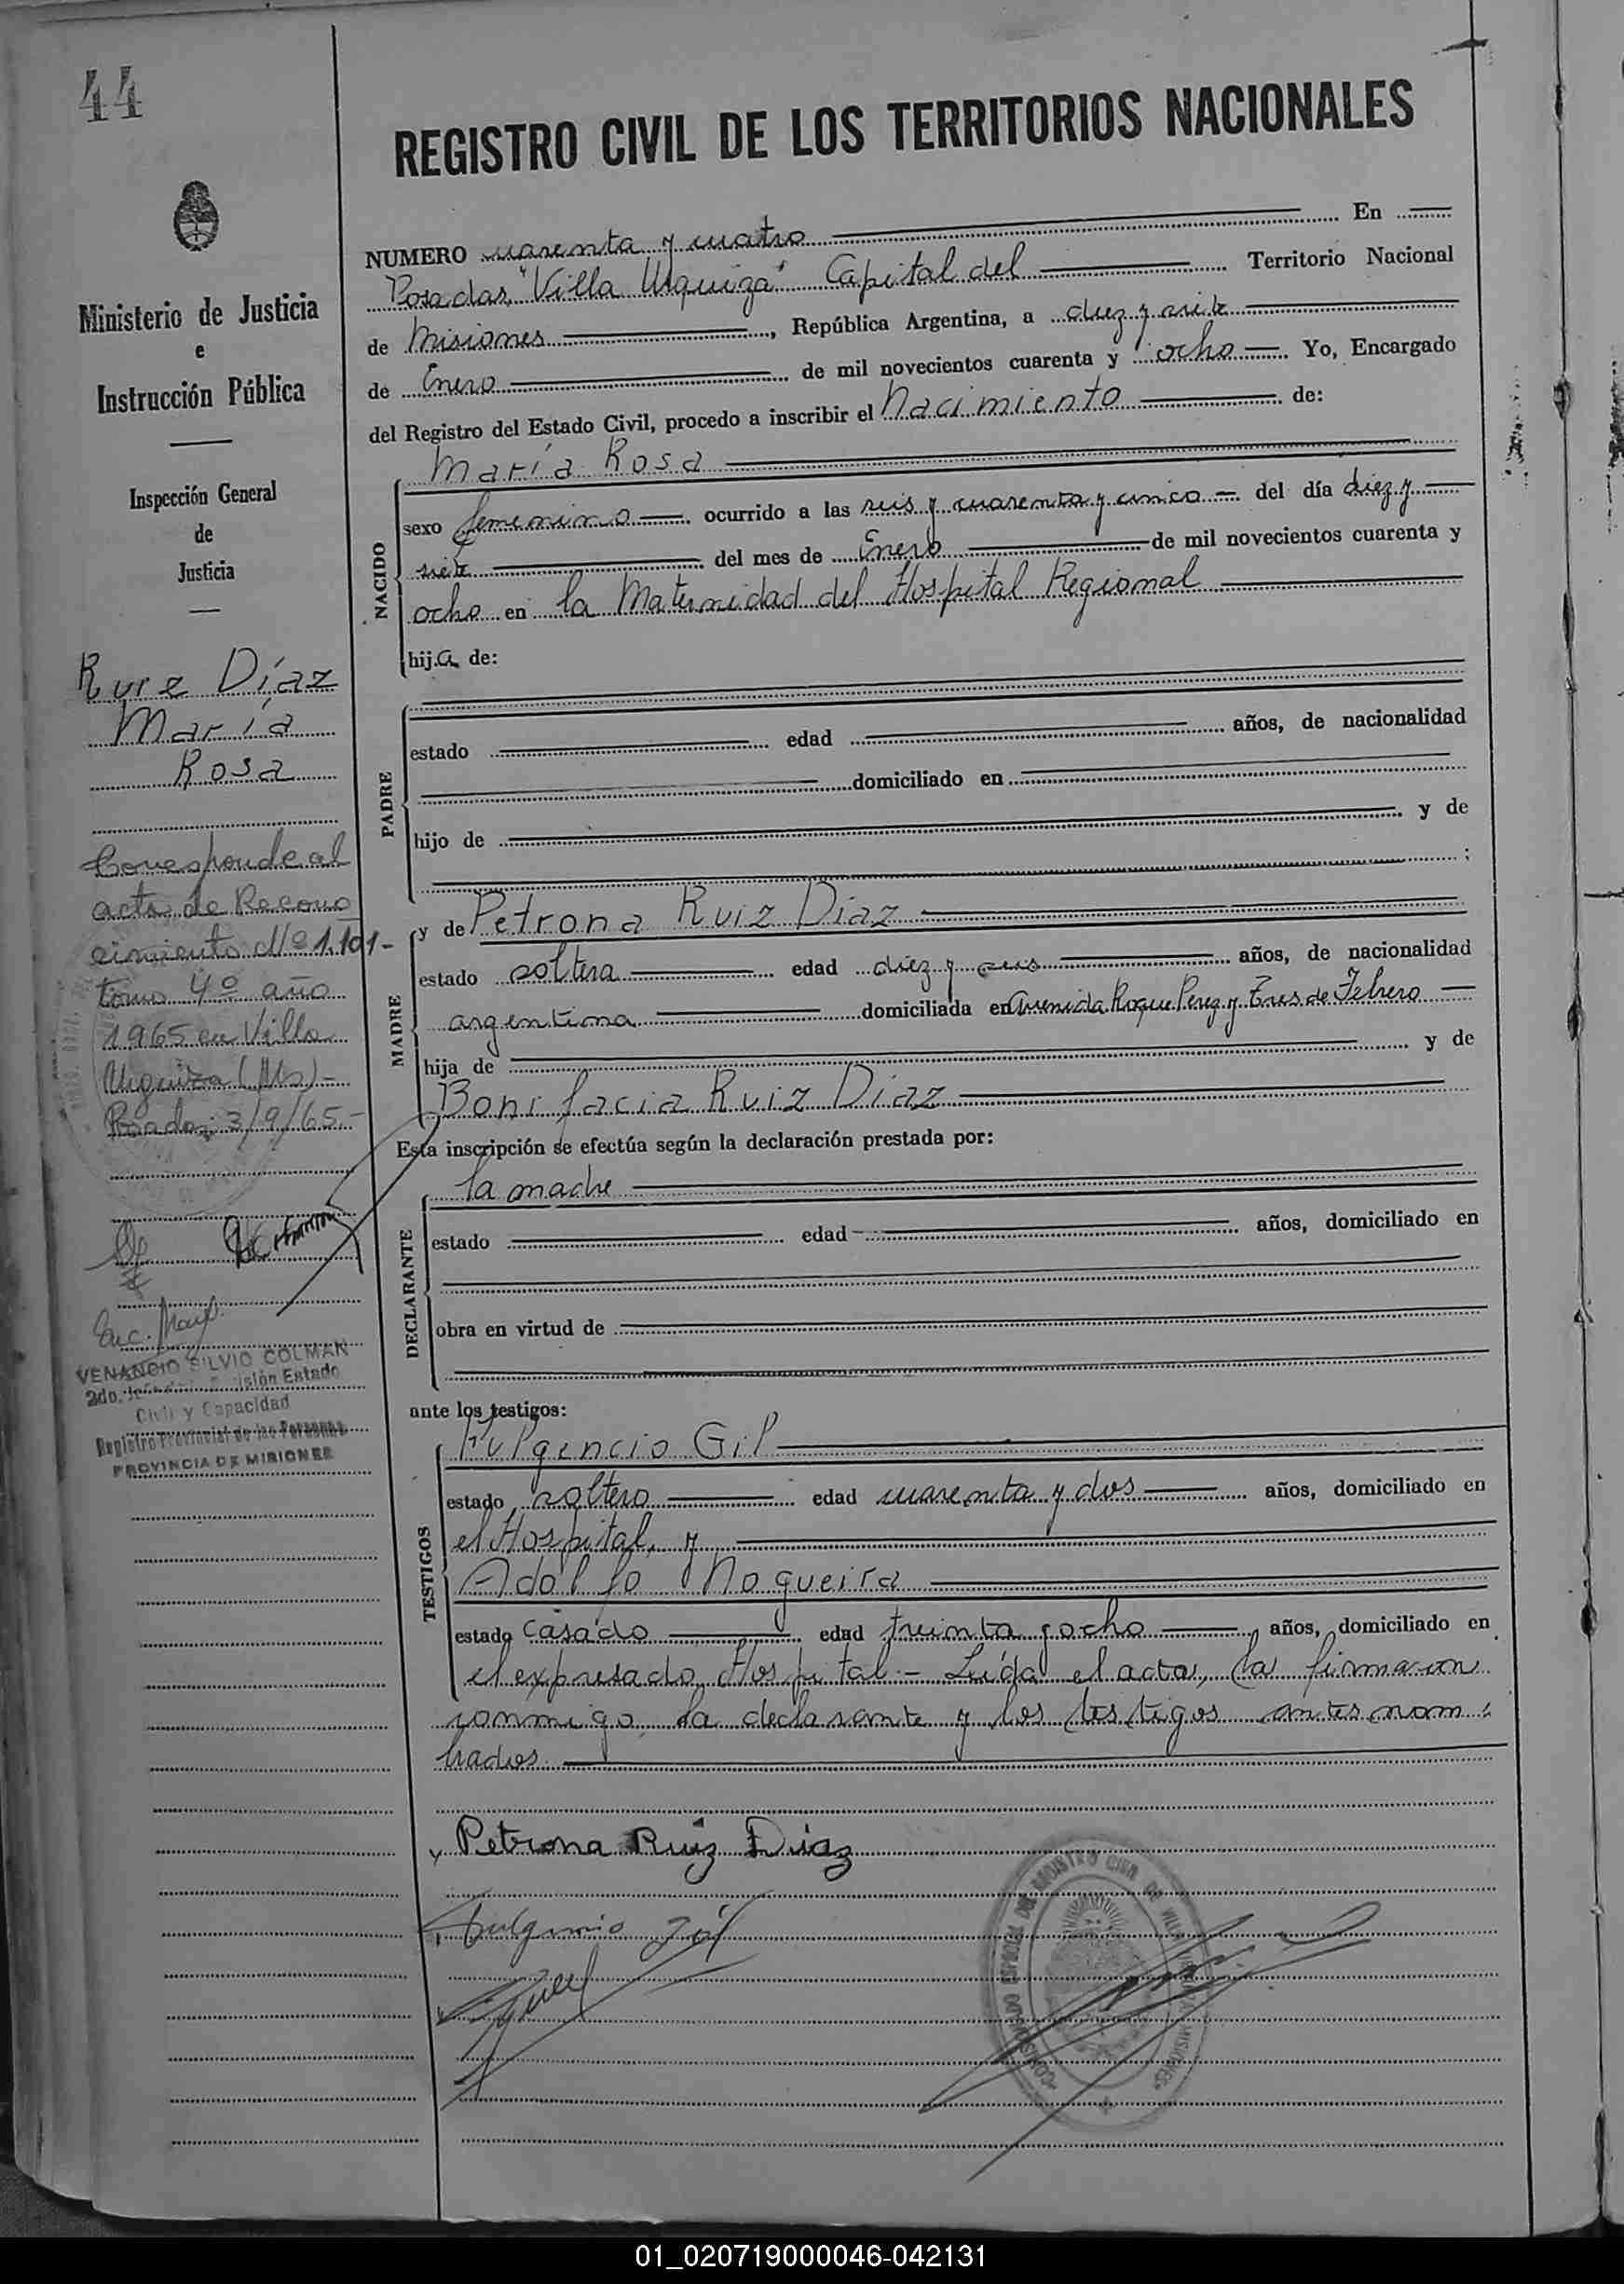 44
REGISTRO CIVIL DE LOS TERRITORIOS NACIONALES
Ministerio de Justicia
e
Instrucción Pública
Inspección General
de
Justicia
Ruiz Díaz
María
Rosa
Corresponde al
acta de Recono
cimiento Nº 1.101-
tomo 4º año
1965 en Villa
Urquiza (Ms)-
Posadas, 3/9/65.-
Enc. Mayo
VENANCIO SILVIO COLMAN
2do. Jefe División Estado
Civil y Capacidad
Registro Provincial de las Personas
PROVINCIA DE MISIONES
NUMERO cuarenta y cuatro En
Posadas, "Villa Urquiza" Capital del Territorio Nacional
de Misiones, República Argentina, a diez y siete
de Enero de mil novecientos cuarenta y ocho. Yo, Encargado
del Registro del Estado Civil, procedo a inscribir el Nacimiento de:
NACIDO
María Rosa
sexo femenino ocurrido a las seis y cuarenta y cinco del día diez y
siete del mes de Enero de mil novecientos cuarenta y
ocho en la Maternidad del Hospital Regional
hija de:
PADRE
estado edad años, de nacionalidad
domiciliado en
hijo de y de
;
MADRE
y de Petrona Ruiz Díaz
estado soltera edad diez y seis años, de nacionalidad
argentina domiciliada en Avenida Roque Perez y Tres de Febrero
hija de y de
Bonifacia Ruiz Díaz
Esta inscripción se efectúa según la declaración prestada por:
DECLARANTE
la madre
estado edad años, domiciliado en
obra en virtud de
ante los testigos:
TESTIGOS
Fulgencio Gil
estado soltero edad cuarenta y dos años, domiciliado en
el Hospital, y
Adolfo Nogueira
estado casado edad treinta y ocho años, domiciliado en
el expresado Hospital.- Leída el acta, la firmaron
conmigo la declarante y los testigos antes nom-
brados.
Petrona Ruiz Diaz
Fulgencio Gil
REGISTRO CIVIL DE VILLA URQUIZA MISIONES
01_020719000046-042131